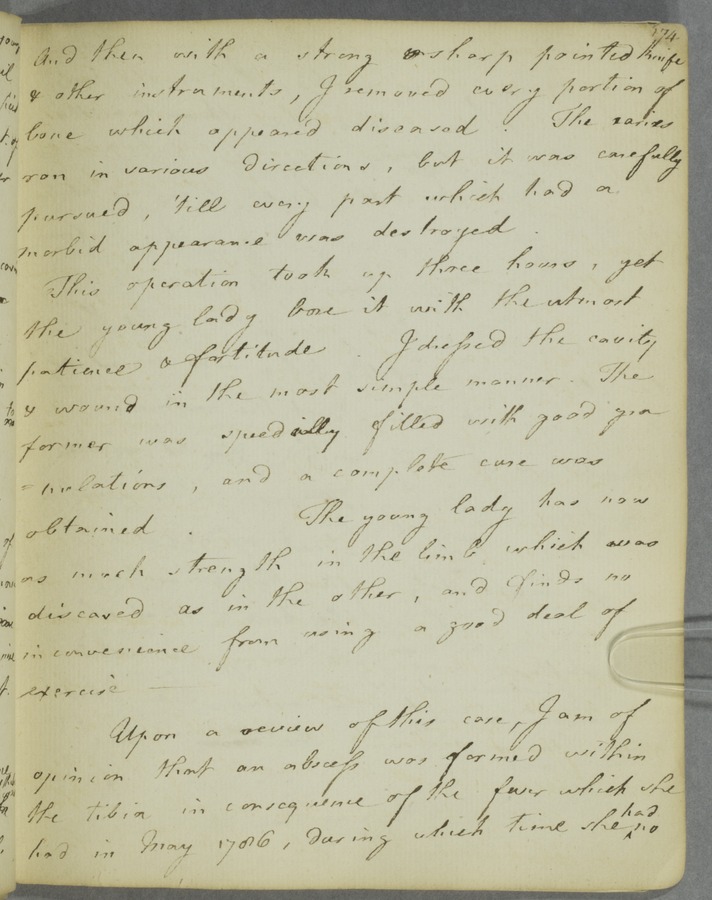 174
And then with a strong & sharp pointed knife
& other instruments, I removed every portion of
bone which appear'd diseased. The caries
ran in various directions, but it was carefully
pursued, 'till every part which had a
morbid appearance was destroyed.
This operation took up three hours, yet
the young lady bore it with the utmost
patience & fortitude. I dressed the cavity
& wound in the most simple manner. The
former was speedily filled with good gra
=nulations, and a complete cure was
obtained. The young lady has now
as much strength in the limb which was
diseased as in the other, and finds no
inconvenience from using a good deal of
exercise —
Upon a review of this case, I am of
opinion that an abscess was formed within
the tibia in consequence of the fever which she
had in May 1786, during which time she had no